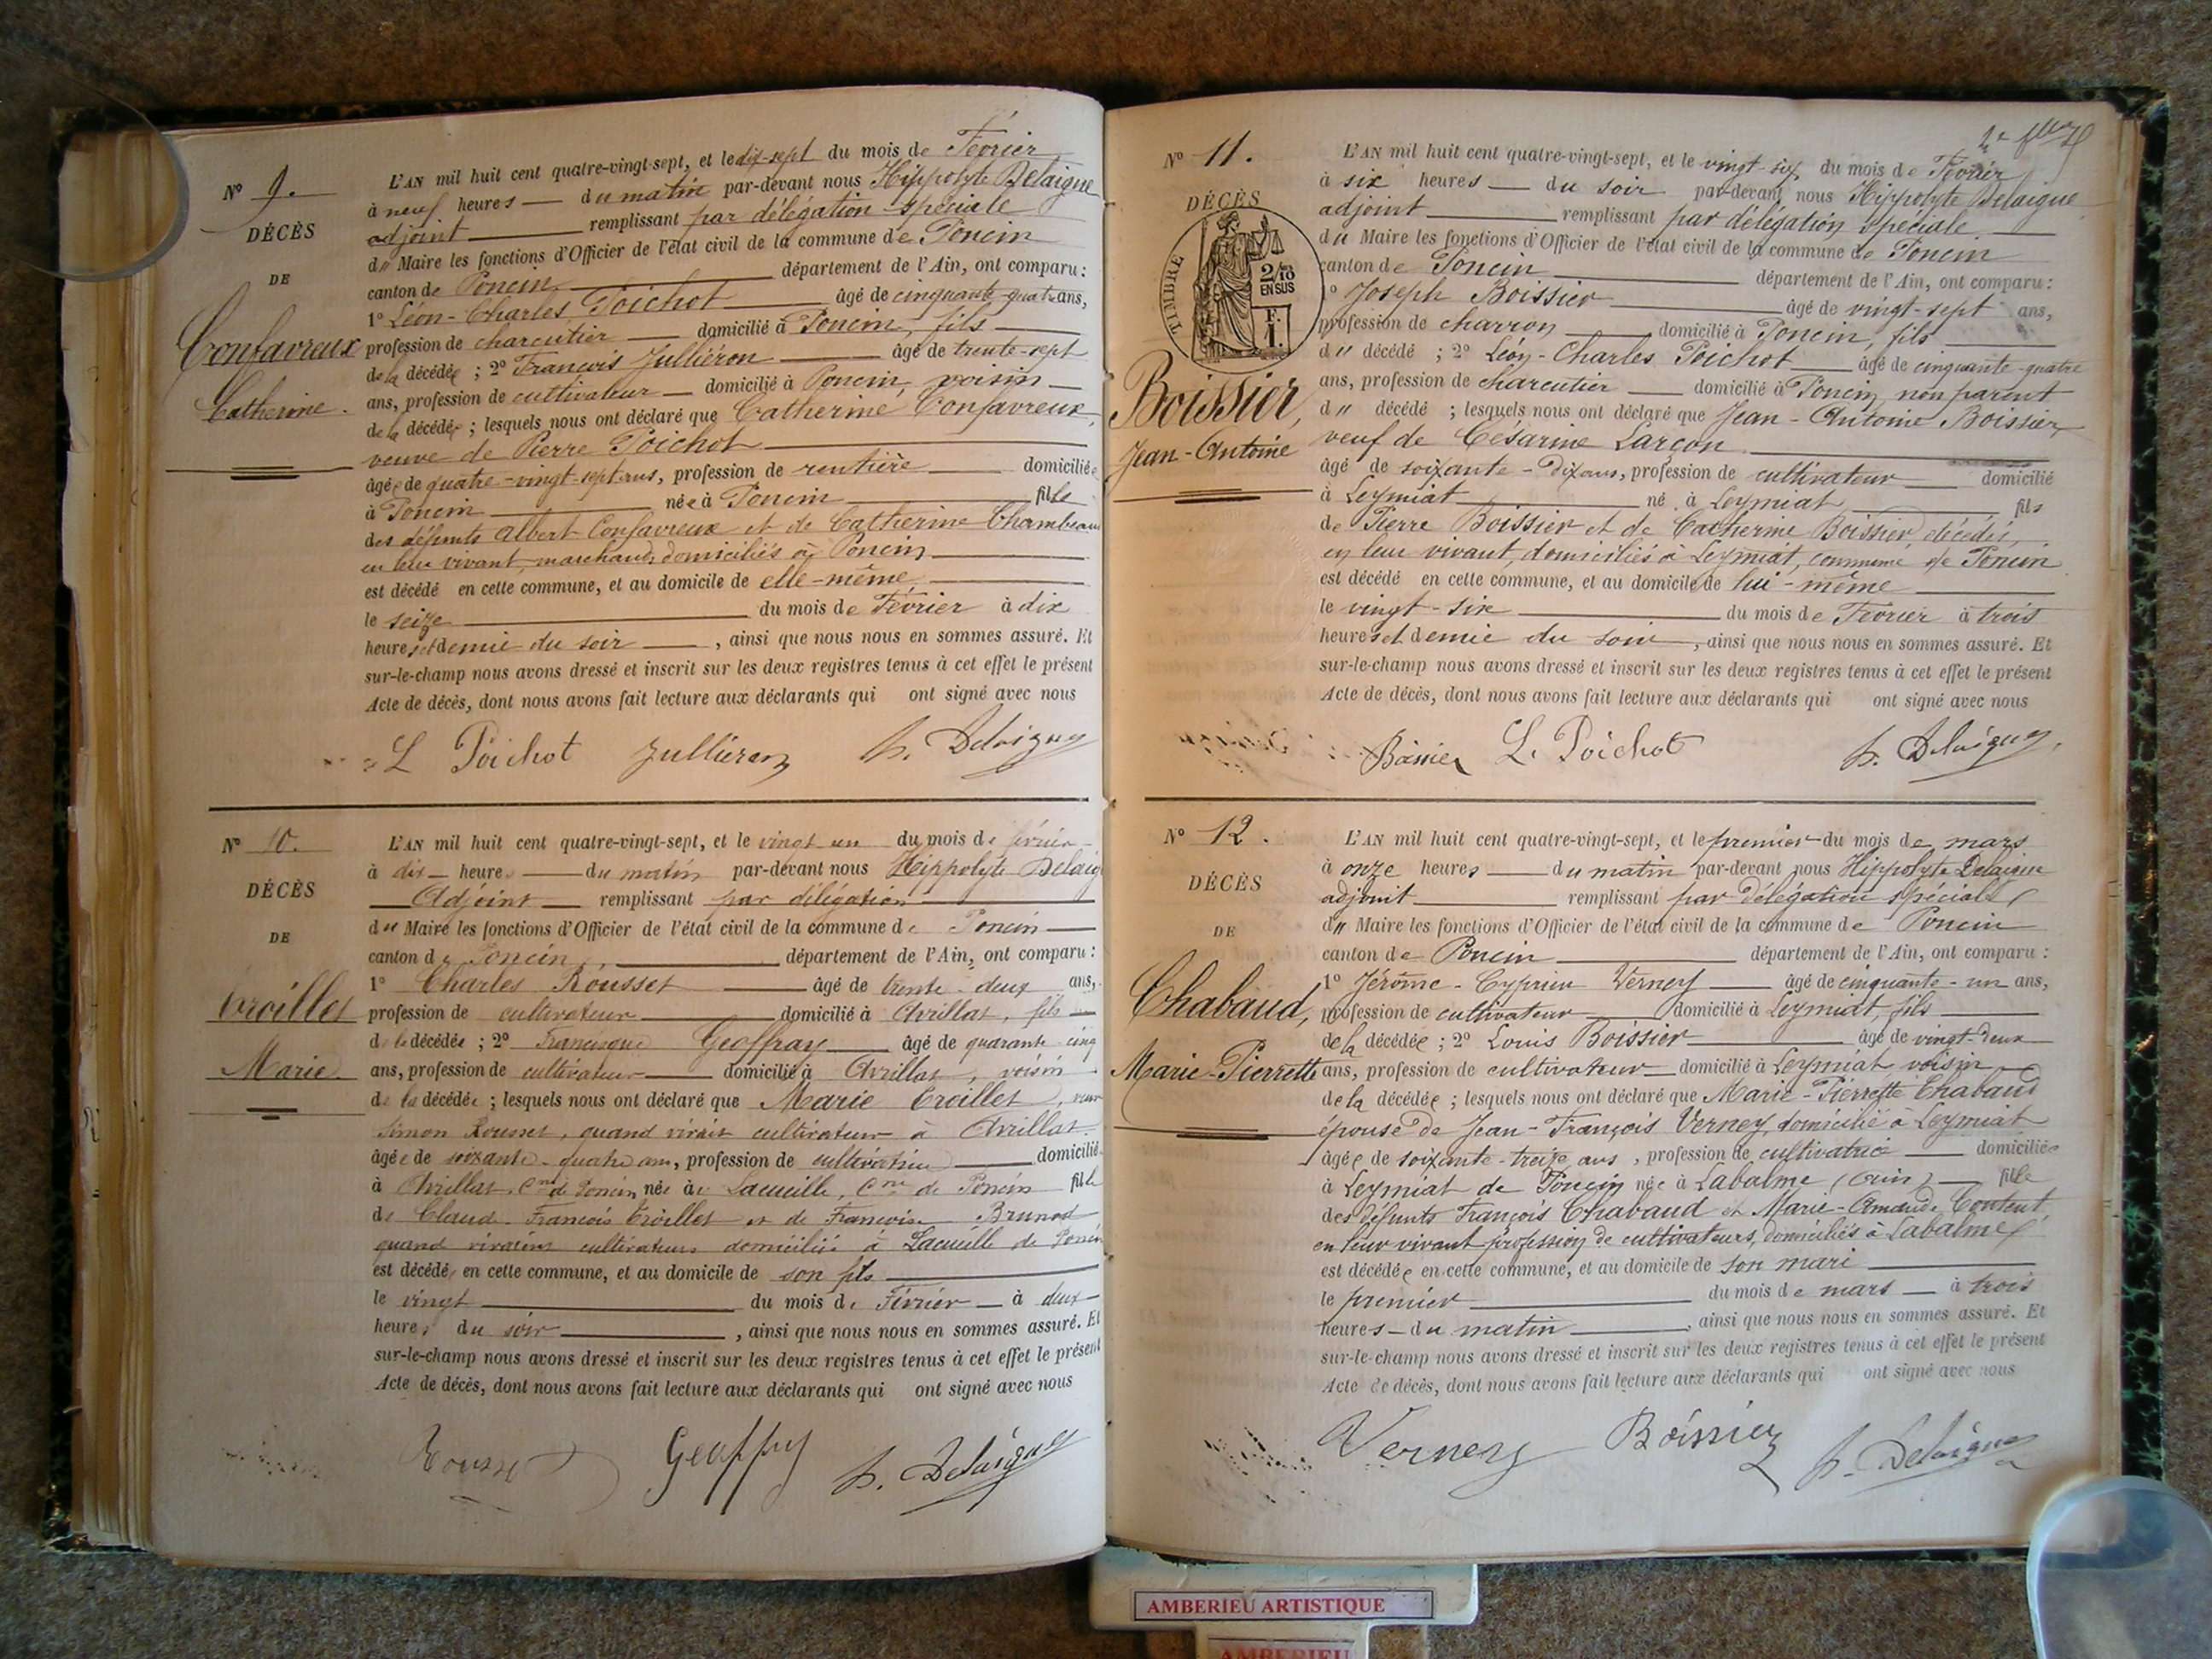 N° 9.
DÉCÈS
DE
Confavreux
Catherine.
L'AN mil huit cent quatre-vingt-sept, et le dix-sept du mois de Février
à neuf heures du matin par-devant nous Hippolyte Delaigue
adjoint remplissant par délégation spéciale
du Maire les fonctions d'Officier de l'état civil de la commune de Poncin
canton de Poncin département de l'Ain, ont comparu :
1° Léon-Charles Poichot âgé de cinquante-quatre ans,
profession de charcutier domicilié à Poncin, fils
de la décédée ; 2° François Julliéron âgé de trente-sept
ans, profession de cultivateur domicilié à Poncin, voisin
de la décédée ; lesquels nous ont déclaré que Catherine Confavreux,
veuve de Pierre Poichot
âgée de quatre-vingt-sept ans, profession de rentière domiciliée
à Poncin née à Poncin fille
des défunts Albert Confavreux et de Catherine Chambeau
en leur vivant, marchands, domiciliés à Poncin
est décédé en cette commune, et au domicile de elle-même
le seize du mois de Février à dix
heures et demie du soir, ainsi que nous nous en sommes assuré. Et
sur-le-champ nous avons dressé et inscrit sur les deux registres tenus à cet effet le présent
Acte de décès, dont nous avons fait lecture aux déclarants qui ont signé avec nous
L Poichot Julliéron h. Delaigue
N° 10.
DÉCÈS
DE
Croillet
Marie
L'AN mil huit cent quatre-vingt-sept, et le vingt un du mois de février
à dix heures du matin par-devant nous Hippolyte Delaig
Adjoint remplissant par délégation
du Maire les fonctions d'Officier de l'état civil de la commune de Poncin
canton de Poncin, département de l'Ain, ont comparu :
1° Charles Rousset âgé de trente-deux ans,
profession de cultivateur domicilié à Avrillat, fils
de la décédée ; 2° Francisque Geoffray âgé de quarante cinq
ans, profession de cultivateur domicilié à Avrillat, voisin
de la décédée ; lesquels nous ont déclaré que Marie Croillet,
Simon Rousset, quand vivait cultivateur à Avrillat
âgée de soixante-quatre ans, profession de domicilié
à Avrillat, Cne de Poncin, née à Lacueille, Cne de Poncin fille
de Claude François Croillet et de Françoise Brunod
quand vivaient cultivateurs domiciliés à Lacueille de Poncin
est décédée en cette commune, et au domicile de son fils
le vingt du mois de Février à deux
heures du soir, ainsi que nous nous en sommes assuré. Et
sur-le-champ nous avons dressé et inscrit sur les deux registres tenus à cet effet le présent
Acte de décès, dont nous avons fait lecture aux déclarants qui ont signé avec nous
Rousset Geoffray h. Delaigue
N° 11.
DÉCÈS
TIMBRE
2/10 EN SUS
F. 1.
Boissier,
Jean-Antoine
L'AN mil huit cent quatre-vingt-sept, et le vingt-six du mois de Février
à six heures du soir par-devant nous Hippolyte Delaigue
adjoint remplissant par délégation spéciale
du Maire les fonctions d'Officier de l'état civil de la commune de Poncin
canton de Poncin département de l'Ain, ont comparu :
1° Joseph Boissier âgé de vingt-sept ans,
profession de charron domicilié à Poncin, fils
du décédé ; 2° Léon-Charles Poichot âgé de cinquante-quatre
ans, profession de charcutier domicilié à Poncin, non parent
du décédé ; lesquels nous ont déclaré que Jean-Antoine Boissier,
veuf de Césarine Larçon
âgé de soixante-dix ans, profession de cultivateur domicilié
à Leymiat né à Leymiat fils
de Pierre Boissier et de Catherine Boissier, décédés,
en leur vivant, domiciliés à Leymiat, commune de Poncin
est décédé en cette commune, et au domicile de lui-même
le vingt-six du mois de Février à trois
heures et demie du soir, ainsi que nous nous en sommes assuré. Et
sur-le-champ nous avons dressé et inscrit sur les deux registres tenus à cet effet le présent
Acte de décès, dont nous avons fait lecture aux déclarants qui ont signé avec nous
Boissier L. Poichot h. Delaigue
N° 12.
DÉCÈS
DE
Chabaud,
Marie-Pierrette
L'AN mil huit cent quatre-vingt-sept, et le premier du mois de mars
à onze heures du matin par-devant nous Hippolyte Delaigue
adjoint remplissant par délégation spéciale
du Maire les fonctions d'Officier de l'état civil de la commune de Poncin
canton de Poncin département de l'Ain, ont comparu :
1° Jérôme-Cyprien Verney âgé de cinquante-un ans,
profession de cultivateur domicilié à Leymiat, fils
de la décédée ; 2° Louis Boissier âgé de vingt-deux
ans, profession de cultivateur domicilié à Leymiat voisin
de la décédée ; lesquels nous ont déclaré que Marie-Pierrette Chabaud
épouse de Jean-François Verney, domicilié à Leymiat
âgée de soixante-treize ans, profession de cultivatrice domiciliée
à Leymiat de Poncin née à Labalme (Ain) fille
des défunts François Chabaud et Marie-Amande Content
en leur vivant profession de cultivateurs, domiciliés à Labalme
est décédée en cette commune, et au domicile de son mari
le premier du mois de mars à trois
heures du matin, ainsi que nous nous en sommes assuré. Et
sur-le-champ nous avons dressé et inscrit sur les deux registres tenus à cet effet le présent
Acte de décès, dont nous avons fait lecture aux déclarants qui ont signé avec nous
Verney Boissier h. Delaigue
AMBERIEU ARTISTIQUE
AMBERIEU